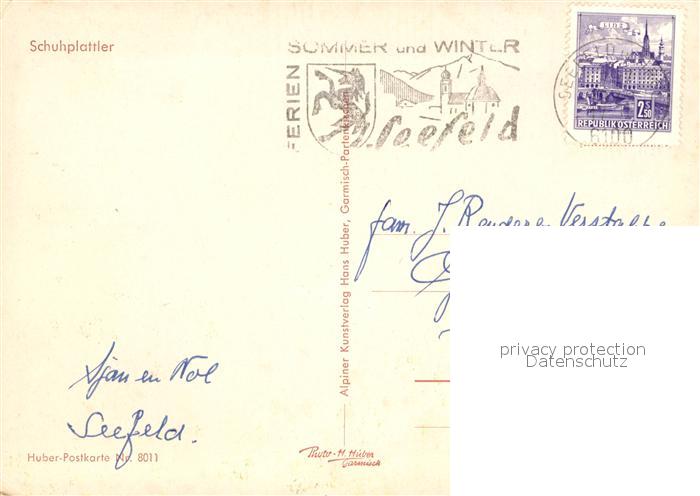 Schuhplattler
FERIEN
SOMMER und WINTER
Seefeld
LINZ
2 S 50
REPUBLIK ÖSTERREICH
SEEFELD
6100
fam. J.
Alpiner Kunstverlag Hans Huber, Garmisch-Partenkirchen
Sjan en Nol
Seefeld.
Huber-Postkarte Nr. 8011
Photo-H. Huber
Garmisch
privacy protection
Datenschutz